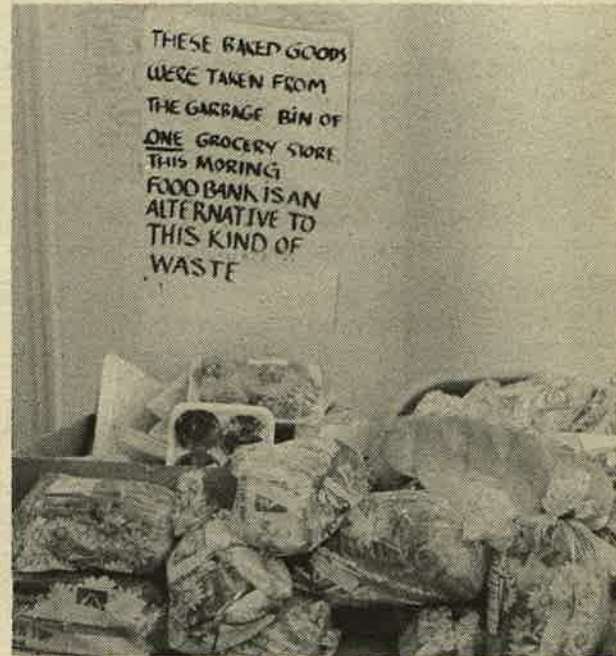 THESE BAKED GOODS
WERE TAKEN FROM
THE GARBAGE BIN OF
ONE GROCERY STORE
THIS MORING
FOOD BANK IS AN
ALTERNATIVE TO
THIS KIND OF
WASTE